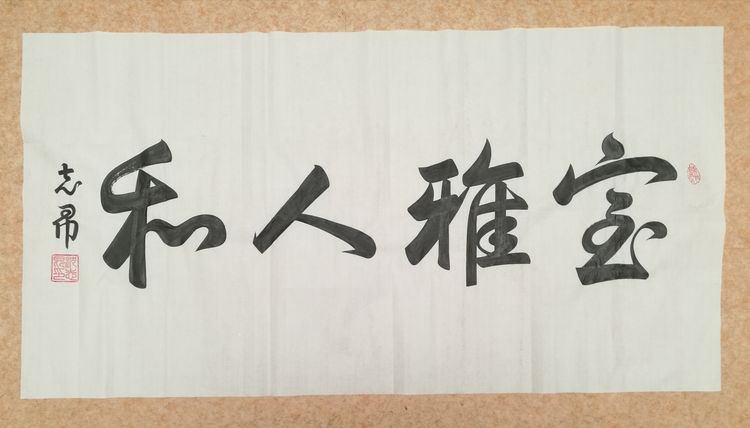 室雅人和
志昂